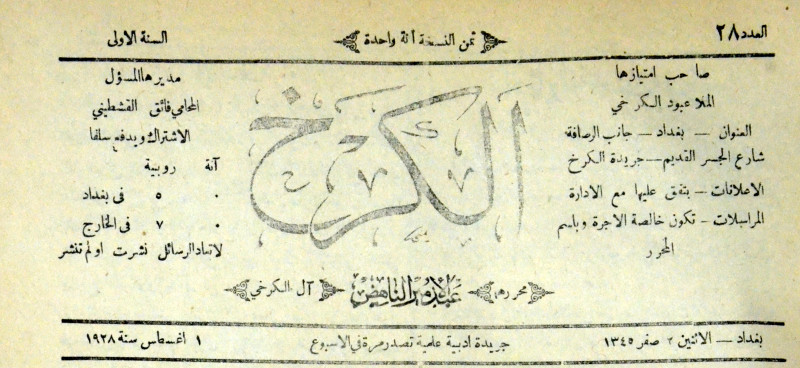 العدد ٢٨
ثمن النسخة آنة واحدة
السنة الاولى
صاحب امتيازها
الملا عبود الكرخي
العنوان – بغداد – جانب الرصافة
شارع الجسر القديم – جريدة الكرخ
الاعلانات – يتفق عليها مع الادارة
المراسلات – تكون خالصة الاجرة وباسم
المحرر
الكرخ
مديرها المسؤل
المحامي فائق القشطيني
الاشتراك ويدفع سلفا
آنة روبية
٠ ٥ في بغداد
٠ ٧ في الخارج
لاتعاد الرسائل نشرت او لم تنشر
محررها
عبدالامير الناهض
آل الكرخي
بغداد – الاثنين ٢ صفر ١٣٤٥
جريدة ادبية علمية تصدر مرة في الاسبوع
١ اغسطس سنة ١٩٢٨